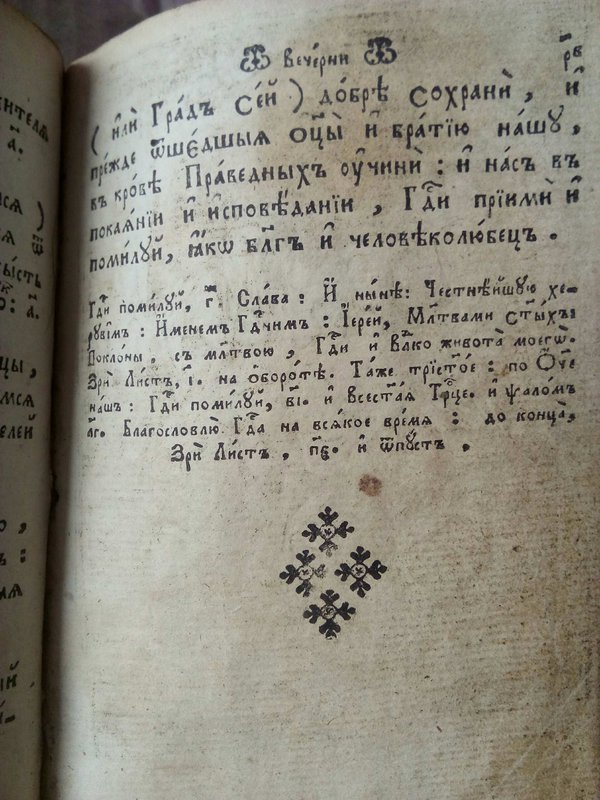 Вече́рни
р҃в
( и҆лѝ Гра́дъ Се́й ) до́брѣ Сохранѝ , и҆
пре́жде ѿше́дшыѧ ѻ҆ц҃ы̀ и҆ бра́тїю на́шу ,
въ кро́вѣ Пра́ведныхъ оу҆чинѝ : и҆ на́съ въ
покаѧ́нїи и҆ и҆сповѣ́данїи , Гд҇и прїимѝ и҆
поми́луй , ꙗ҆́кѡ бл҃гъ и҆ человѣколю́бецъ .
Гд҇и поми́луй , г҃. Сла́ва : И҆ ны́нѣ : Честнѣ́йшую хе-
руві̑мъ : И҆́менемъ Гд҇чимъ : І҆ере́й , Мл҃твами ст҃ы́хъ :
Покло́ны , съ мл҃твою , Гд҇и и҆ Влⷣко живота̀ моегѡ̀ .
Зрѝ Ли́стъ , і҃. на ѻ҆боро́тѣ . Та́же трист҃о́е : по Ѻ҆́ч҃е
на́шъ : Гд҇и поми́луй , в҃і. и҆ Всест҃а́ѧ Трⷪ҇це . и҆ ѱало́мъ
л҃г. Благословлю̀ Гд҇а на всѧ́кое вре́мѧ : до конца̀ ,
Зрѝ Ли́стъ , п҃є. и҆ ѿпу́стъ .